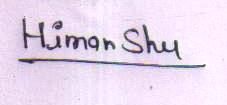 Himan Shu